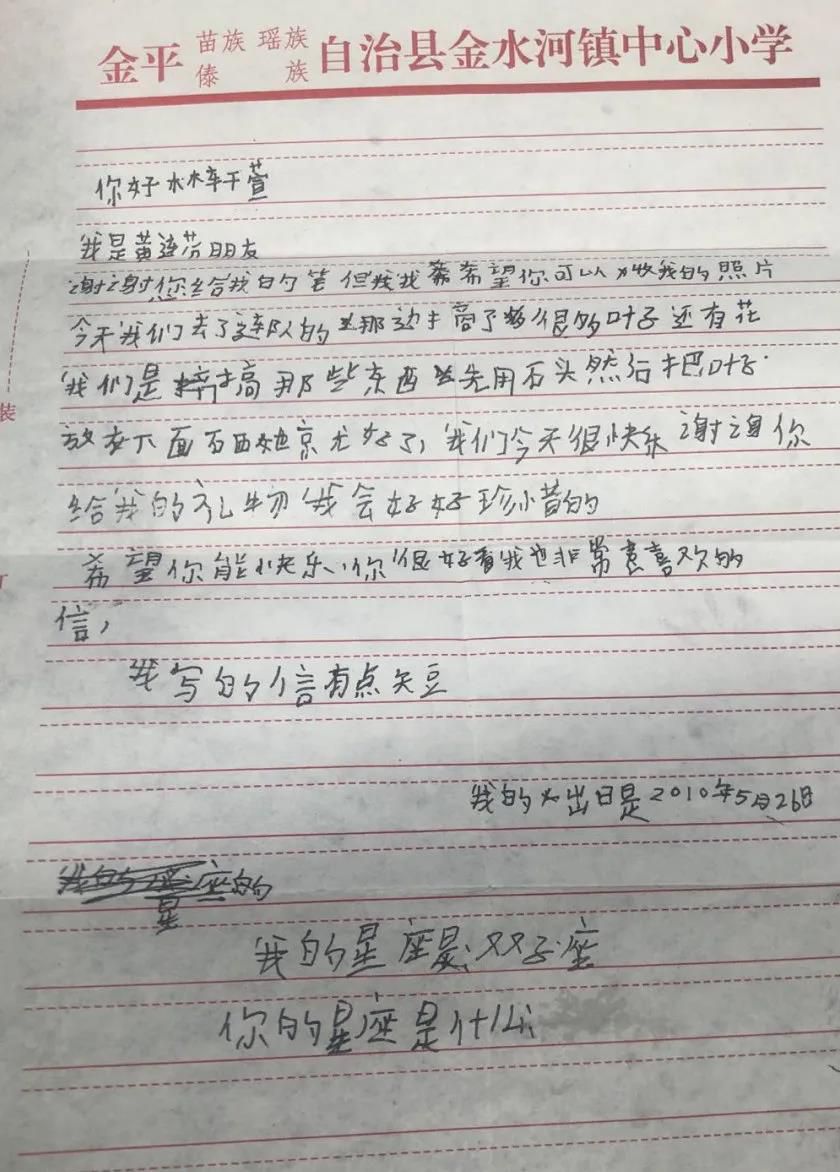 金平 苗族 瑶族 傣族 自治县金水河镇中心小学
你好 林梓萱
我是黄连芬朋友
谢谢您给我的笔 但我 希望你可以 收我的照片
今天我们去了连队的 那边 搞了 很多叶子 还有花
我们是 搞那些东西 先用石头然后把叶子
放在下面 就好了,我们今天很快乐 谢谢你
给我的礼物 我会好好珍惜的
希望你能快乐、你很好看我也非常 喜欢的
信,
我写的信有点短
我的 出日是2010年5月26日
装
订
我的星座的
我的星座是双子座
你的星座是什么